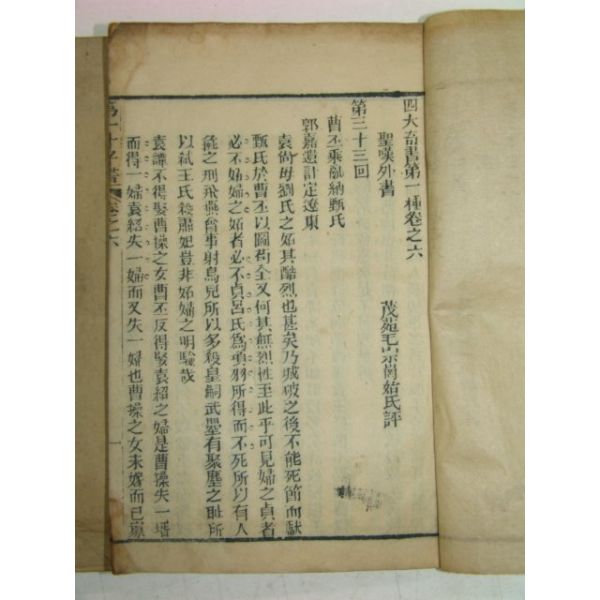 四大奇書第一種卷之六
聖嘆外書
茂苑毛宗崗始氏評
第三十三回
曹丕乘亂納甄氏
郭嘉遺計定遼東
袁尙母劉氏之妬其酷烈也甚矣乃城破之後不能死節而獻
甄氏於曹丕以圖苟全又何其無烈性至此乎可見婦之貞者
必不妬婦之妬者必不貞呂氏爲項羽所得而不死所以有人
彘之刑飛燕曾事射鳥兒所以多殺皇嗣武曌有聚麀之耻所
以弑王氏殺蕭妃豈非妬婦之明驗哉
袁譚不得娶曹操之女曹丕反得娶袁紹之婦是曹操失一壻
而得一婦袁紹失一婦而又失一婦也曹操之女未婚而已
第一才子書 卷之六
一